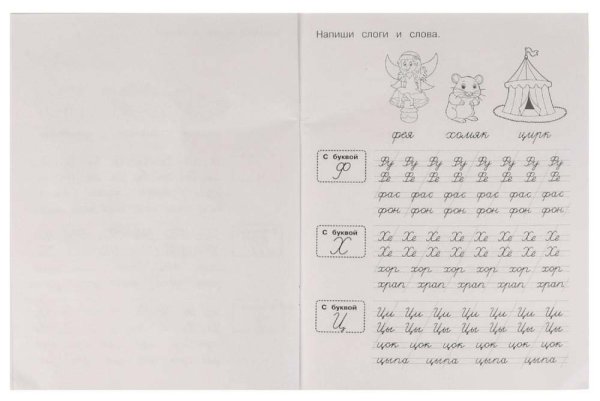 Напиши слоги и слова.
фея хомяк цирк
С буквой
Ф
Фу Фу Фу Фу Фу Фу Фу Фу
Фе Фе Фе Фе Фе Фе Фе Фе
фас фас фас фас фас фас фас
фон фон фон фон фон фон
С буквой
Х
Хе Хе Хе Хе Хе Хе Хе Хе
Хе Хе Хе Хе Хе Хе Хе Хе
хор хор хор хор хор хор хор
храп храп храп храп храп
С буквой
Ц
Ци Ци Ци Ци Ци Ци Ци Ци
Цы Цы Цы Цы Цы Цы Цы Цы
цок цок цок цок цок цок цок
цыпа цыпа цыпа цыпа